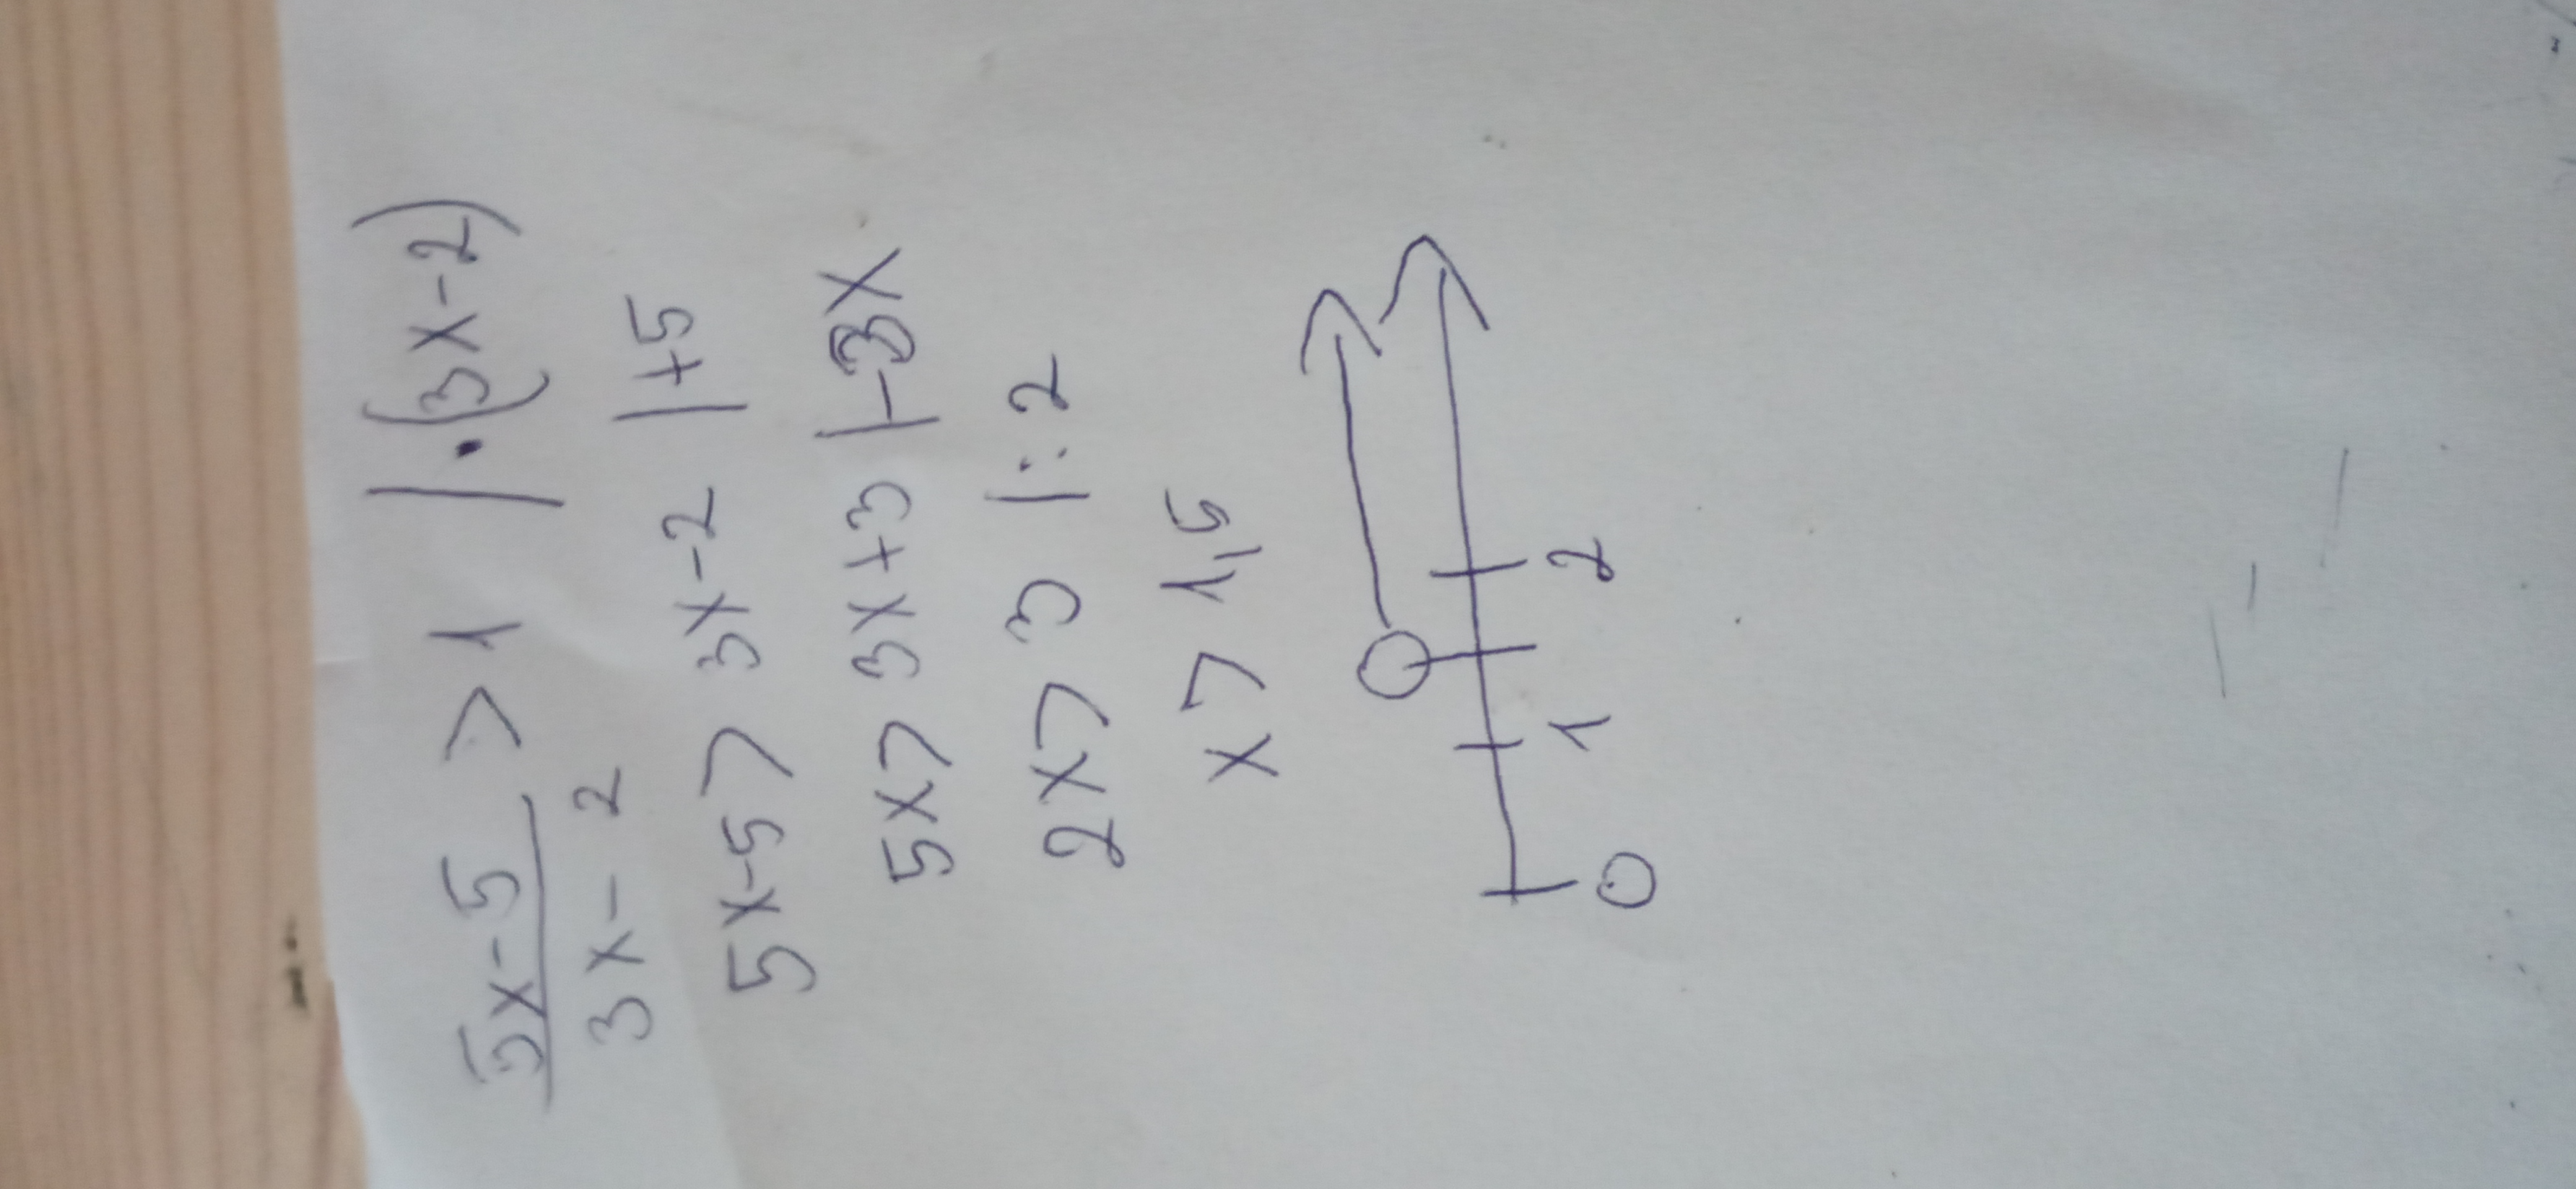 5x-5 > 1 | · (3x-2)
3x - 2
5x-5 > 3x-2 | +5
5x > 3x+3 | -3x
2x > 3 | : 2
x > 1,5
0 1 2